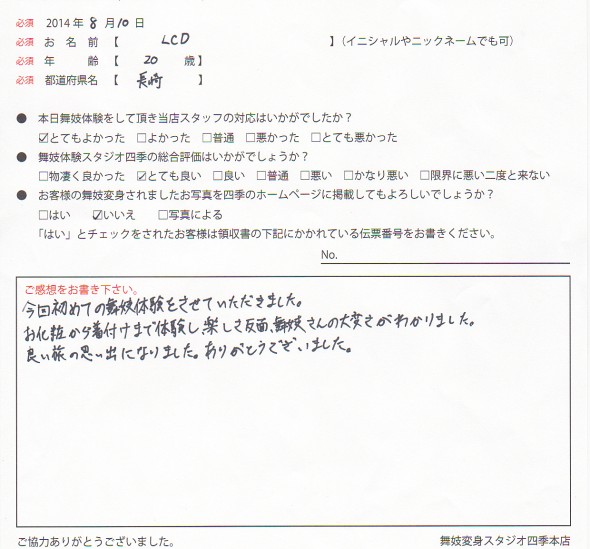 必須 2014年 8 月 10 日
必須 お 名 前 【 LCD 】(イニシャルやニックネームでも可)
必須 年 齢 【 20 歳】
必須 都道府県名 【 長崎 】
● 本日舞妓体験をして頂き当店スタッフの対応はいかがでしたか?
☑とてもよかった □よかった □普通 □悪かった □とても悪かった
● 舞妓体験スタジオ四季の総合評価はいかがでしょうか?
□物凄く良かった ☑とても良い □良い □普通 □悪い □かなり悪い □限界に悪い二度と来ない
● お客様の舞妓変身されましたお写真を四季のホームページに掲載してもよろしいでしょうか?
□はい ☑いいえ □写真による
「はい」とチェックをされたお客様は領収書の下記にかかれている伝票番号をお書きください。
No.
ご感想をお書き下さい。
今回初めての舞妓体験をさせていただきました。
お化粧から着付けまで体験し、楽しさ反面、舞妓さんの大変さがわかりました。
良い旅の思い出になりました。ありがとうございました。
ご協力ありがとうございました。 舞妓変身スタジオ四季本店